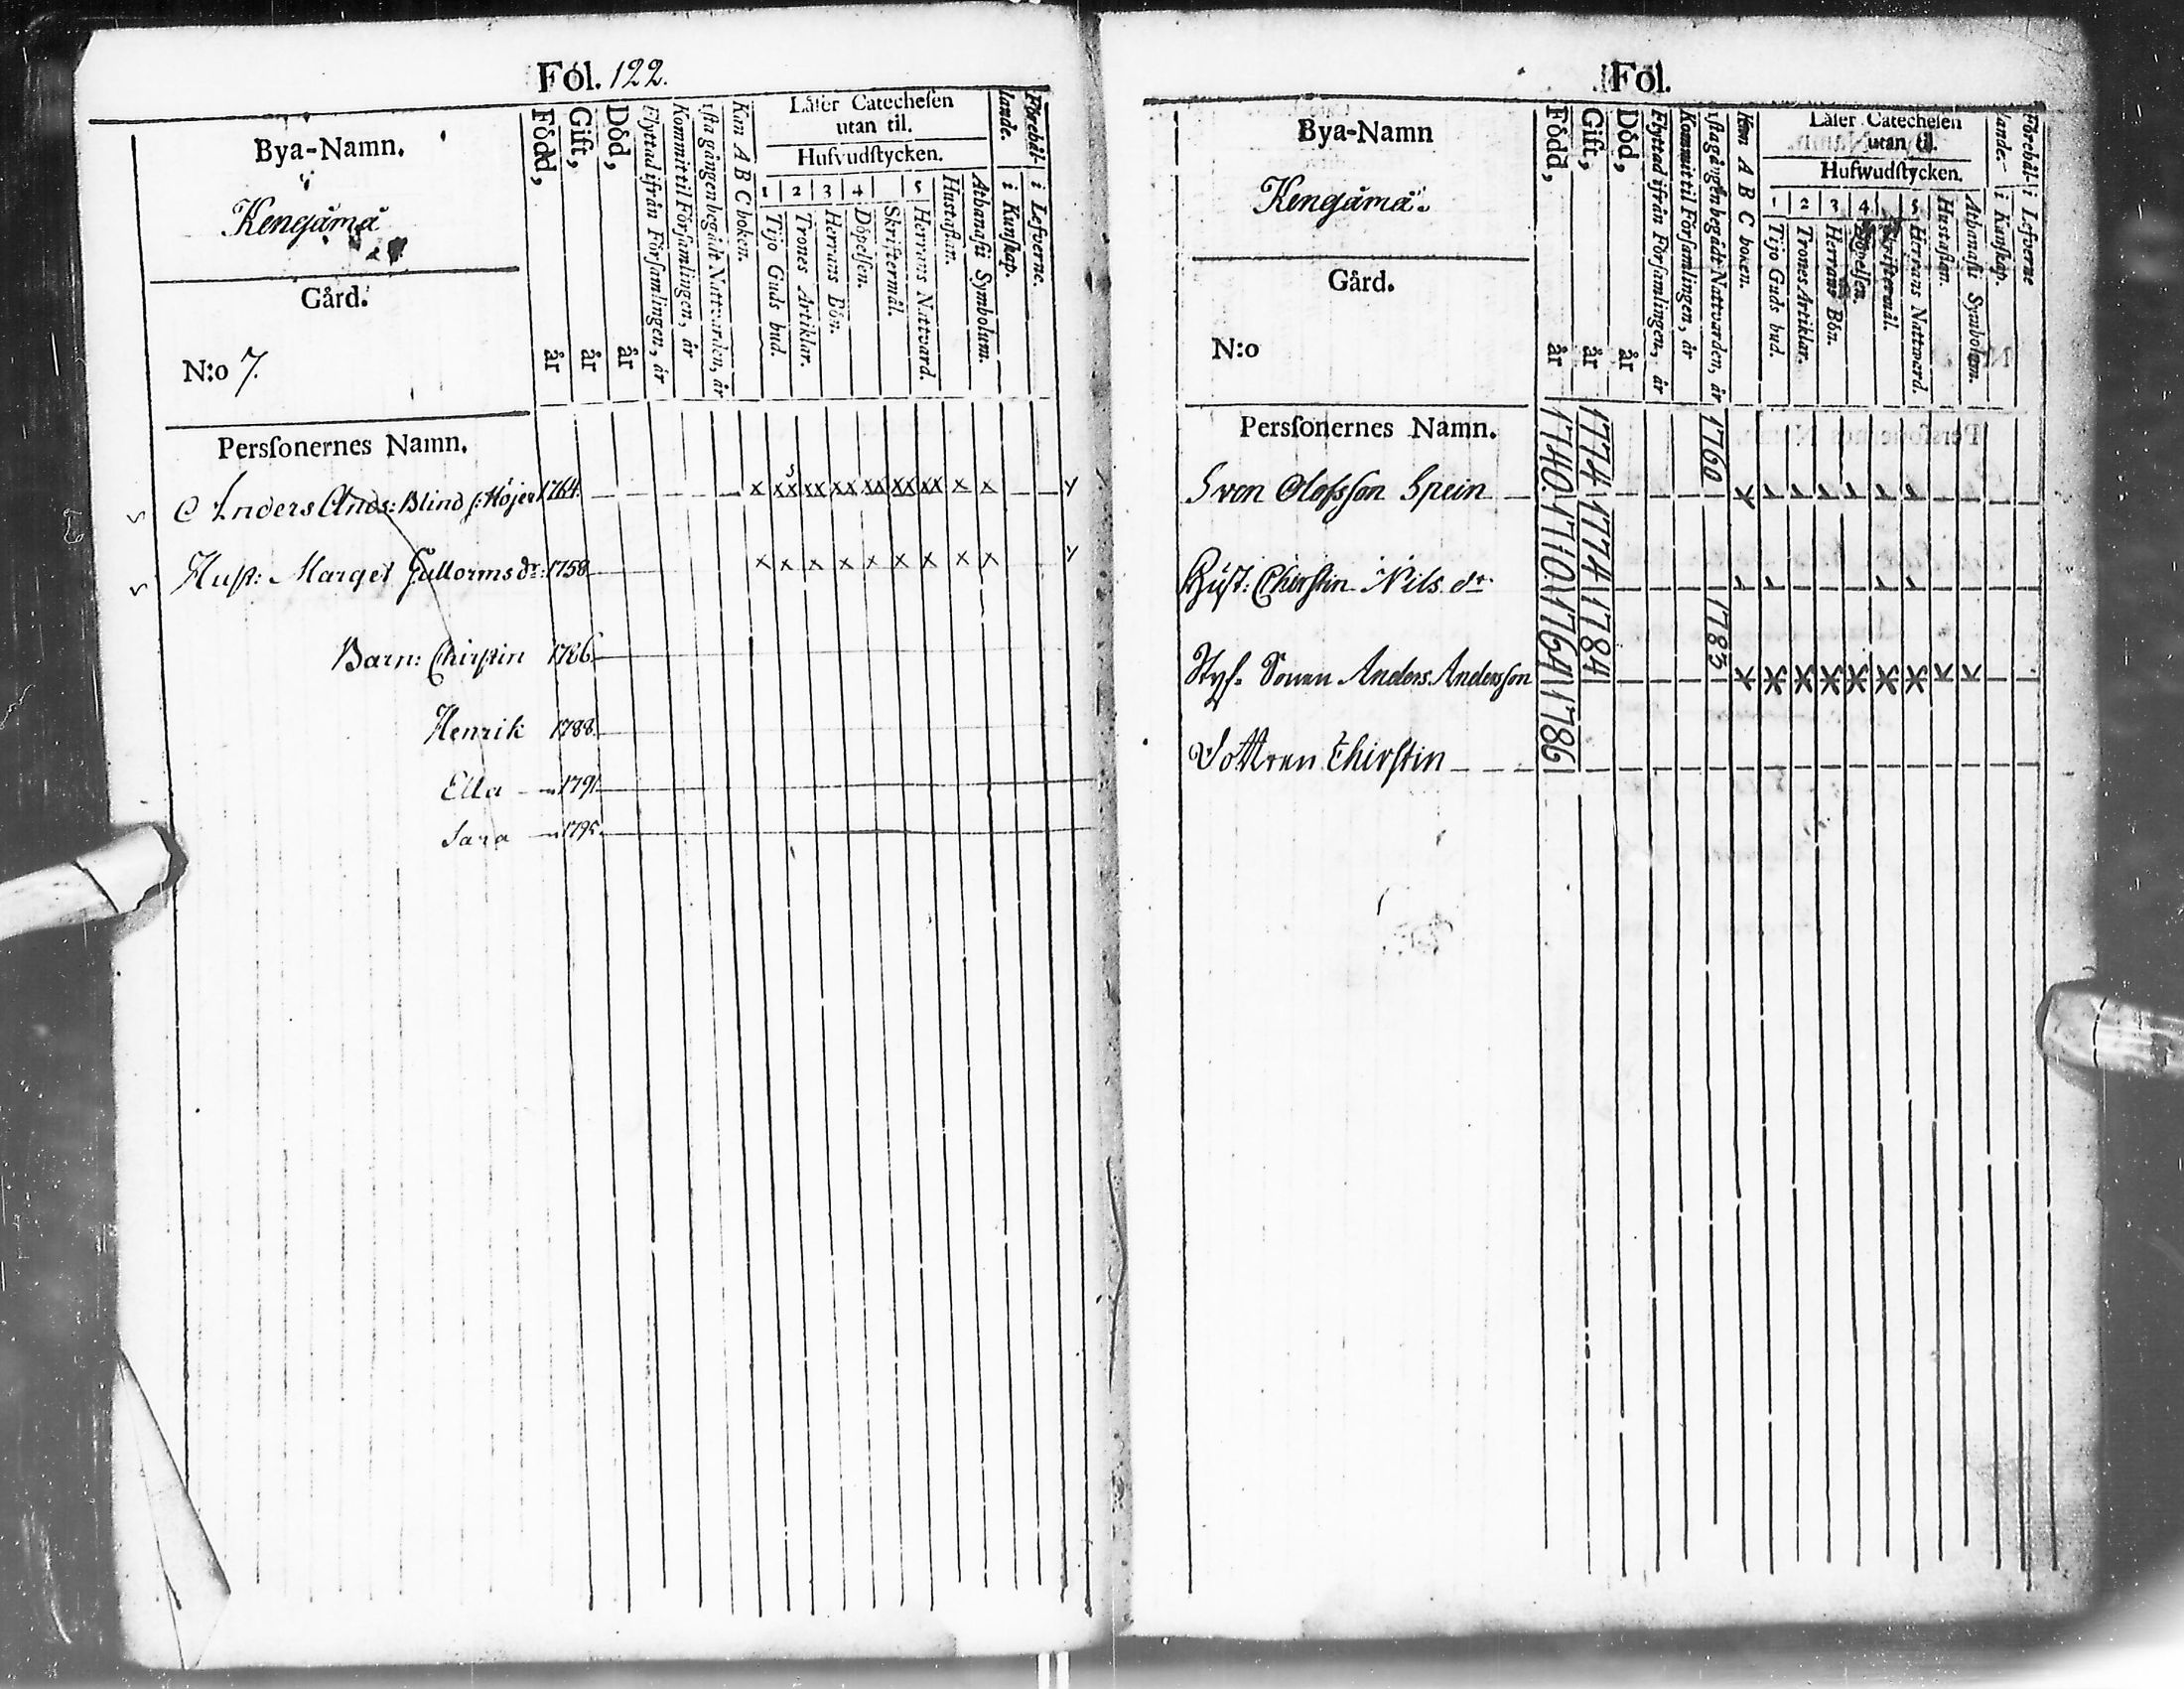 Fol. 122.
Bya-Namn.
Kengämä
Gård.
N:o 7.
Född, år
Gift, år
Död, år
Flyttad ifrån Församlingen, år
Kommit til Församlingen, år
Kan A B C boken.
Låser Catechesen
utan til.
Hufvudstycken.
1 2 3 4 5
Tijo Guds bud.
Trones Artiklar.
Herrans Bön.
Döpelsen.
Skriftermål.
Herrans Nattvard.
Hustaflan.
Athanasii Symbolum.
Förehållande.
i Kunskap.
i Lefverne.
Persſonernes Namn.
Anders Ands: Blind s: Höjer 1764.
Hust: Marget Gullormsdr: 1758
Barn: Chirstin 1786.
Henrik 1788.
Ella 1791
Sara 1795
Fol.
Bya-Namn
Kengämä
Gård.
N:o
Född, år
Gift, år
Död, år
Flyttad ifrån Församlingen, år
Kommit til Församlingen, år
Kan A B C boken.
Låser Catechesen
utan til.
Hufwudstycken.
1 2 3 4 5
Tijo Guds bud.
Trones Artiklar.
Herrans Bön.
Döpelsen.
Skriftermål.
Herrans Nattward.
Hustaflan.
Athanasii Symbolum.
i Kunskap.
i Lefverne
Persſonernes Namn.
Sven Olofsson Spein 1740 1774 1760
Hust: Chirstin Nils dr 1710 1774
Styf-Sonen Anders Andersson 1764 1784 1783
Dottren Chirstin 1786